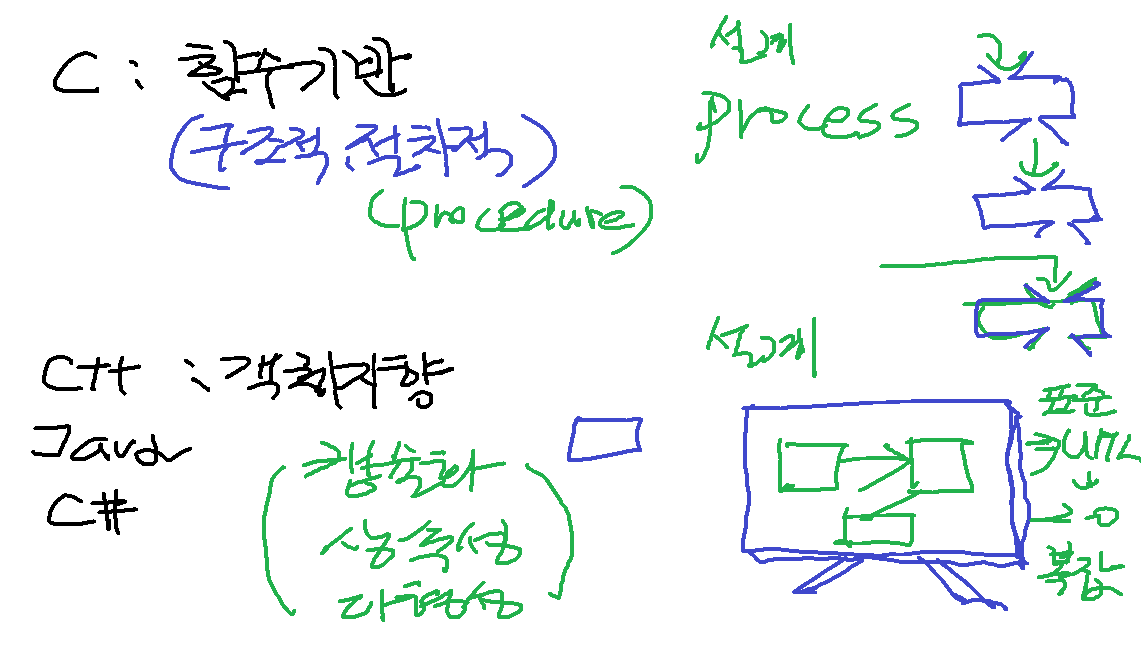 C : 함수기반
(구조적, 절차적)
(procedure)
설계
process
C++ : 객체지향
Java
C#
(캡슐화
상속성
다형성)
설계
표준
UML
2.0
복잡